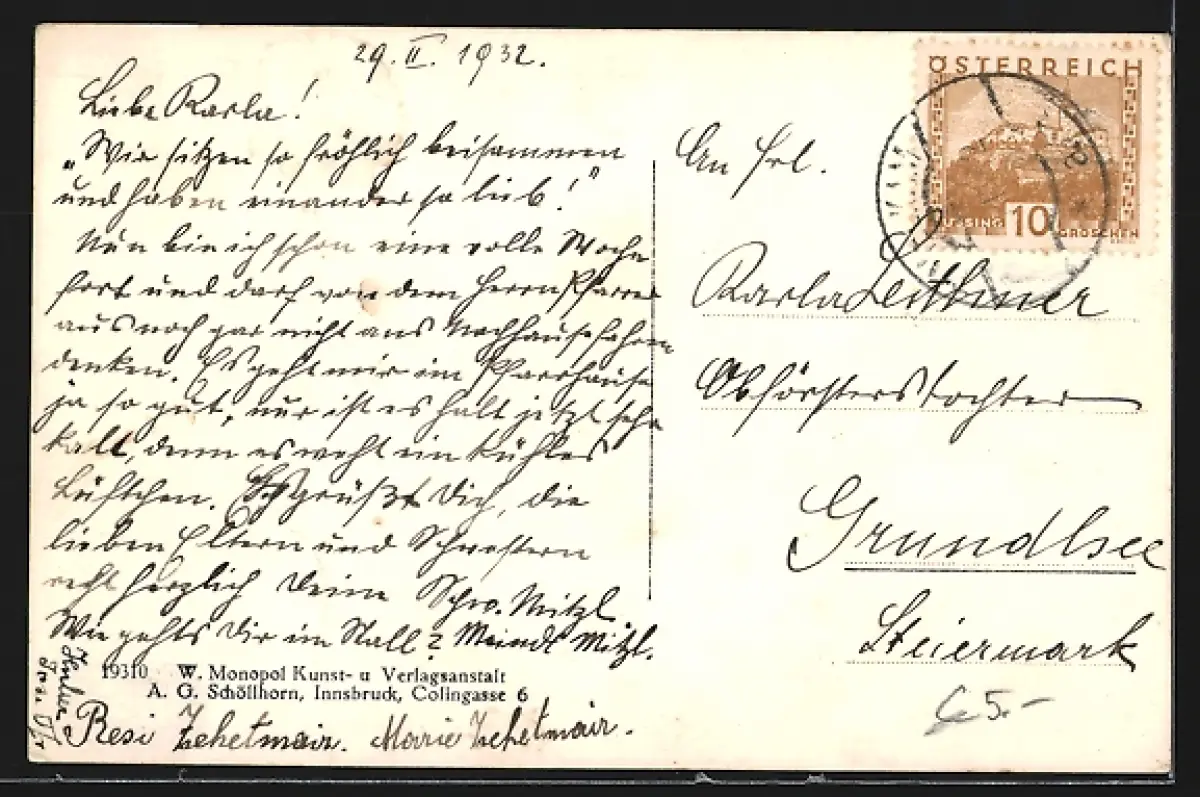 29. II. 1932.
Liebe Karla!
„Wir sitzen so fröhlich beisammen
und haben einander so lieb!"
Nun bin ich schon eine volle Woche
fort und darf von dem Herrn Pfarrer
aus noch gar nicht ans Nachhausefahren
denken. Es geht mir im Pfarrhause
ja so gut, nur ist es halt jetzt sehr
kalt, denn es weht ein kühles
Lüftchen. Es grüßt Dich, die
lieben Eltern und Schwestern
recht herzlich Deine Schw. Mitzl
Wie gehts Dir im Stall? Mitzl.
19310 W. Monopol Kunst- u Verlagsanstalt
A. G. Schöllhorn, Innsbruck, Colingasse 6
Resi Zehetmair. Marie Zehetmair.
ÖSTERREICH
GÜSSING 10 GROSCHEN
An Frl.
Karla Leithner
Oberförsterstochter
Grundlsee
Steiermark
5.-